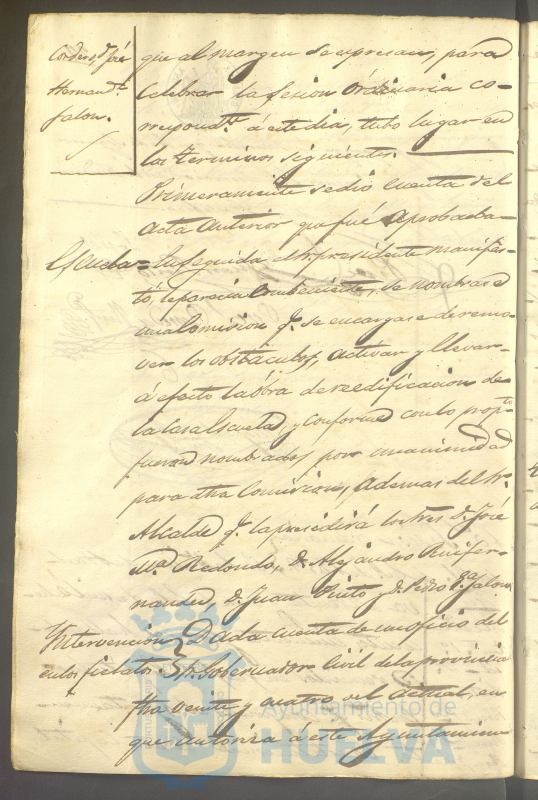 Cordero, D. José
Hernand.z
Jalon.
que al margen se expresan, para
Celebrar la sesion Ordinaria co-
rrespond.te á este dia, tubo lugar en
los terminos siguientes.
Primeramente se dio cuenta del
Acta Anterior que fué Aprobada
Escuela = En seguida el Sr. presidente manifes-
tó, le parecia Combeniente, se nombrase
una Comision q.e se encargase de remo-
ver los obstáculos, activar y llevar
á efecto la obra de reedificacion de
la Casa Escuela, y Conforme con lo prop.to
fueron nombrados por unanimidad
para dha Comision, Ademas del Sr.
Alcalde q.e la presidirá los Sres D. José
M.a Redondo, D. Alejandro Ruifer-
nandez, D. Juan Pinto y D. Pedro G.a Jalon
Intervencion
en los fielatos
Dada cuenta de un oficio del
Sr. Gobernador Civil de la provincia
fha veinte y quatro del Actual, en
que autoriza á este Ayuntamien
Ayuntamiento de
HUELVA